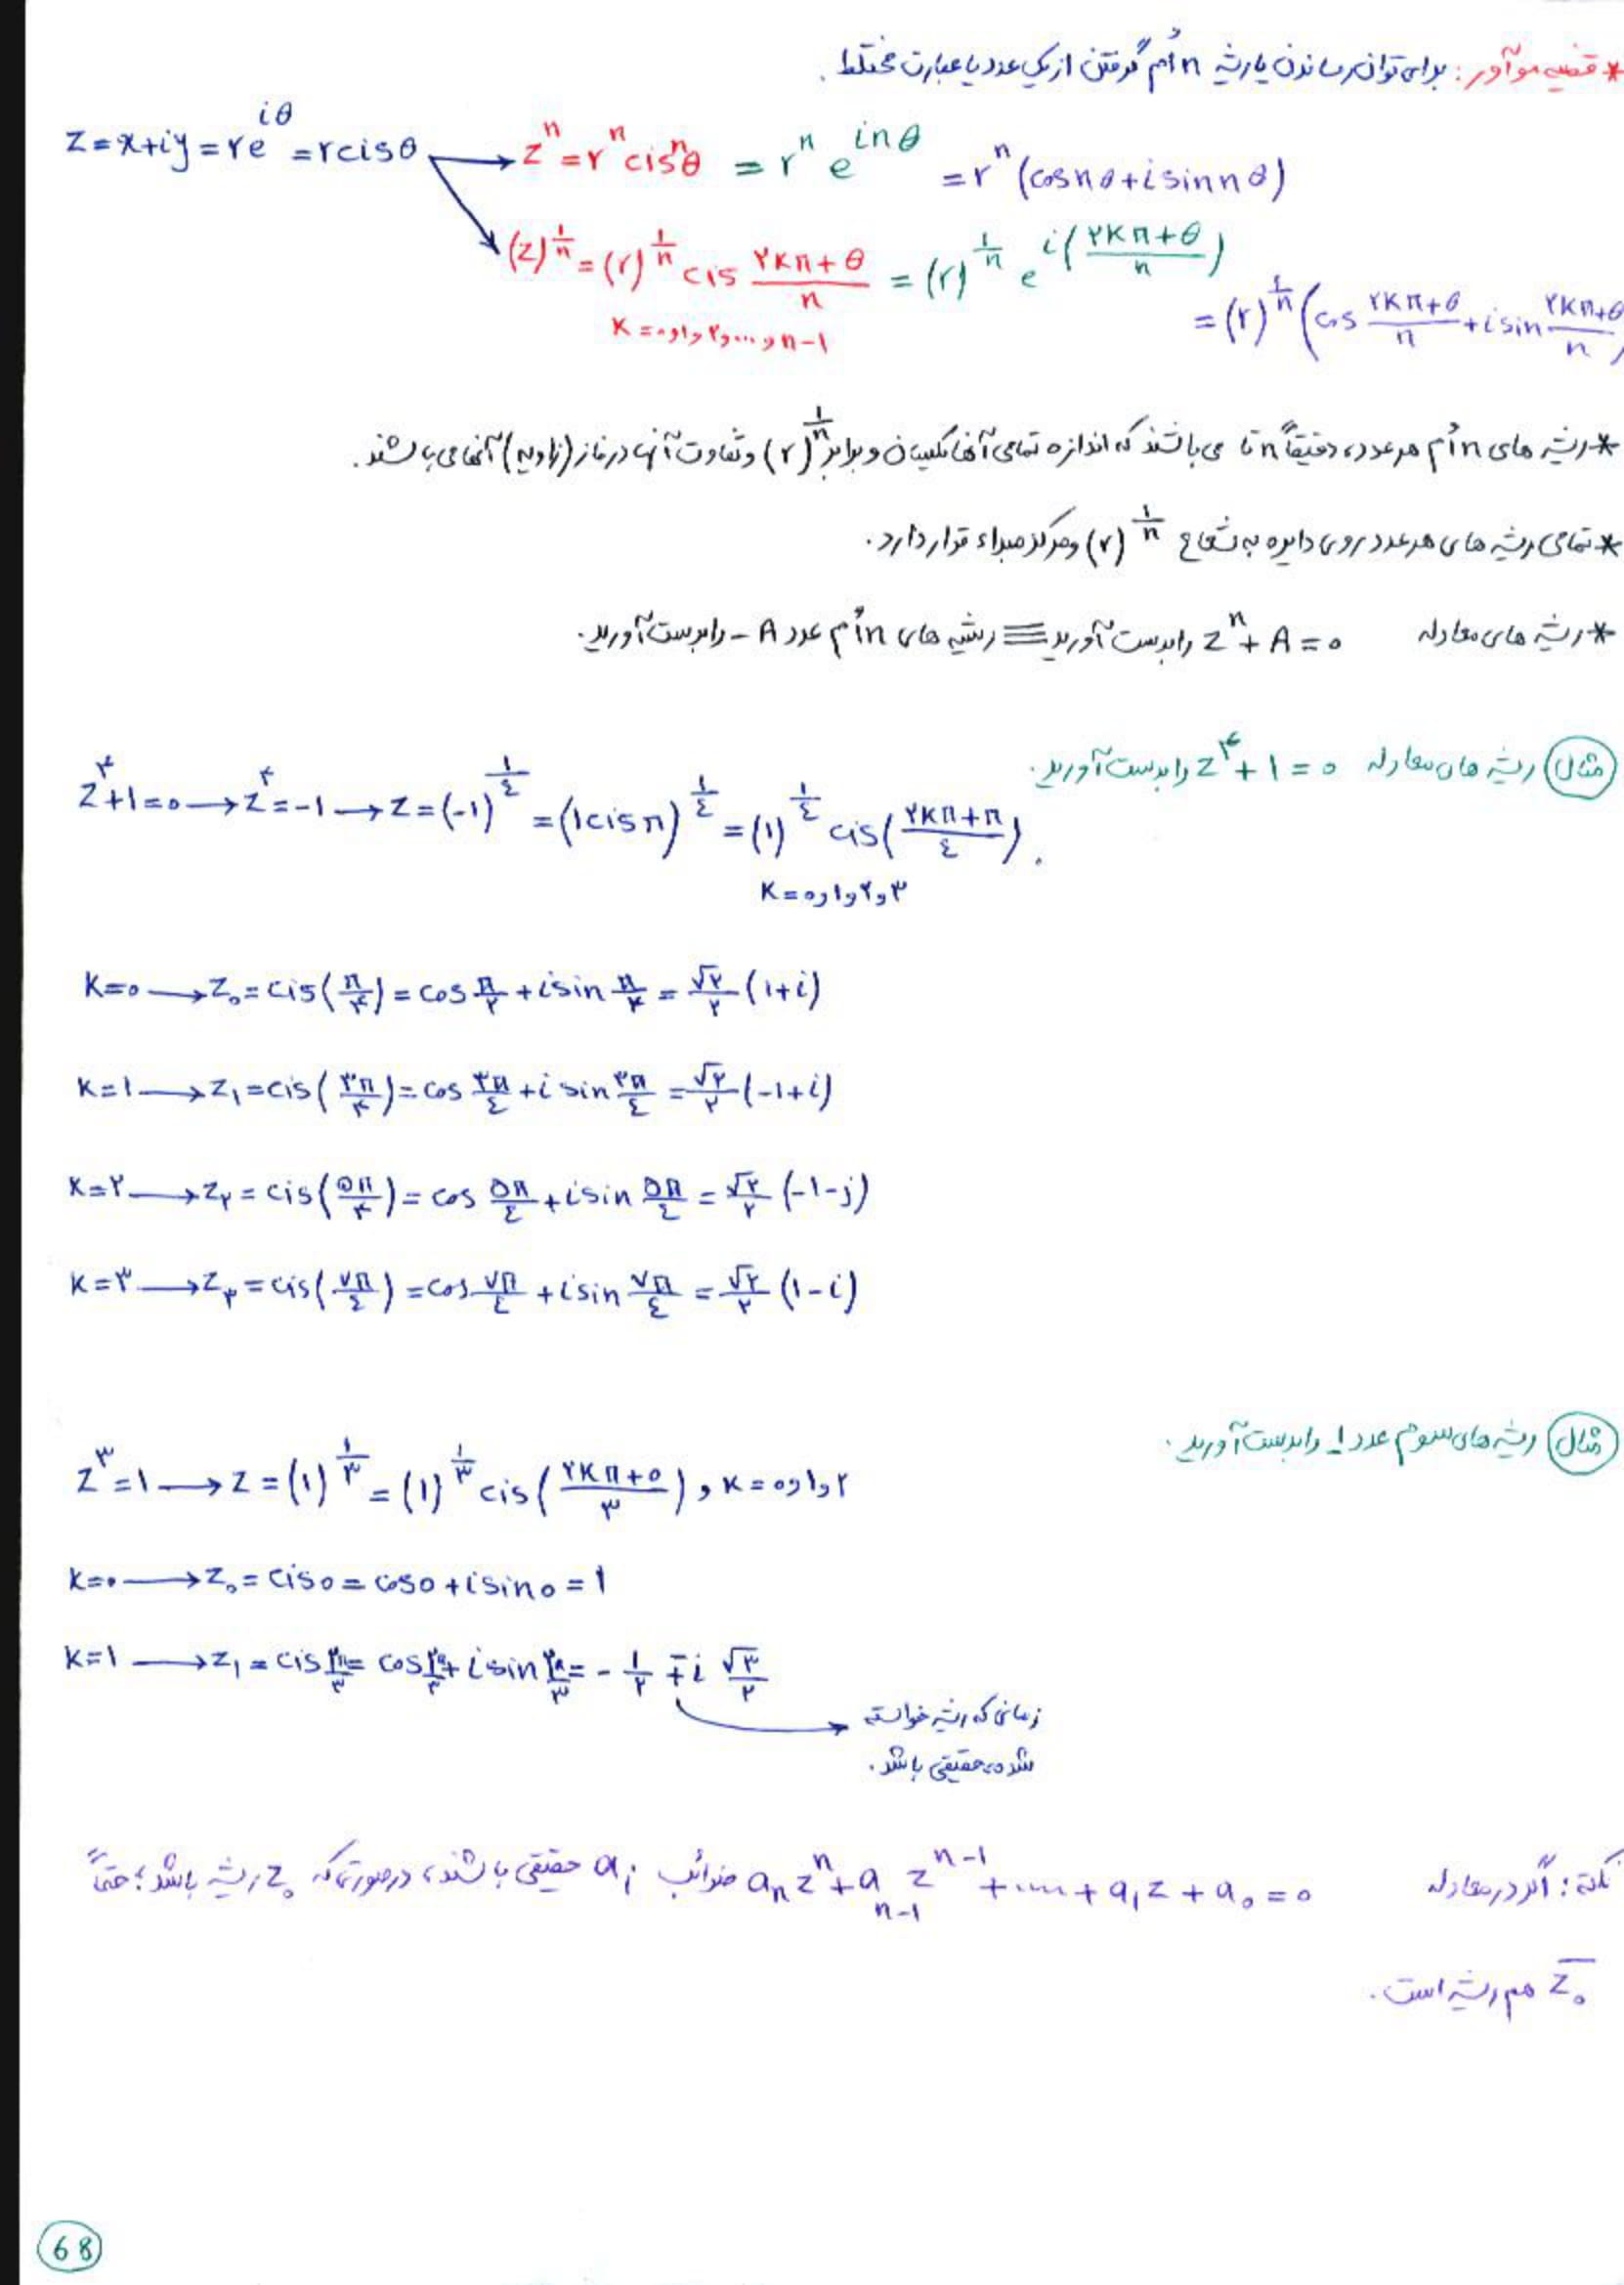 * قضیه موآور: برای توان رساندن یا ریشه nاُم گرفتن از یک عدد یا عبارت مختلط.
z = x+iy = re^{iθ} = rcisθ → z^n = r^n cis nθ = r^n e^{inθ} = r^n (cos nθ + i sin nθ)
(z)^{1/n} = (r)^{1/n} cis (۲kπ+θ)/n = (r)^{1/n} e^{i((۲kπ+θ)/n)}
= (r)^{1/n} (cos (۲kπ+θ)/n + i sin (۲kπ+θ)/n)
K = ۰ و ۱ و ۲ و ... و n-1
* ریشه های nاُم هر عدد، دقیقاً n تا می باشند که اندازه تمامی آنها یکسان و برابر (r)^{1/n} و تفاوت آنها در فاز (زاویه) آنها می باشند.
* تمامی ریشه های هر عدد روی دایره به شعاع (r)^{1/n} و مرکز مبداء قرار دارد.
* ریشه های معادله z^n + A = ۰ را بدست آورید ≡ ریشه های nاُم عدد A- را بدست آورید.
مثال ریشه های معادله z^۴ + 1 = ۰ را بدست آورید.
z^۴+1=۰ → z^۴=-1 → z=(-1)^{1/٤} = (1cisπ)^{1/٤} = (1)^{1/٤} cis((۲kπ+π)/٤).
K=۰ و ۱ و ۲ و ۳
K=۰ → z_۰ = cis(π/۴) = cos π/۲ + i sin π/۴ = √۲/۲ (1+i)
K=1 → z_1 = cis(۳π/۴) = cos ۳π/٤ + i sin ۳π/٤ = √۲/۲ (-1+i)
K=۲ → z_۲ = cis(۵π/۴) = cos ۵π/٤ + i sin ۵π/٤ = √۲/۲ (-1-j)
K=۳ → z_۳ = cis(۷π/٤) = cos ۷π/٤ + i sin ۷π/٤ = √۲/۲ (1-i)
مثال ریشه های سوم عدد 1 را بدست آورید.
z^۳=1 → z=(1)^{1/۳} = (1)^{1/۳} cis((۲kπ+۰)/۳) , K=۰ و ۱ و ۲
K=۰ → z_۰ = cis۰ = cos۰ + i sin۰ = 1
K=1 → z_1 = cis ۲π/۳ = cos ۲π/۳ + i sin ۲π/۳ = -1/۲ ∓ i √۳/۲
زمانی که ریشه خواسته
شده حقیقی باشد.
نکته: اگر در معادله a_n z^n + a_{n-1} z^{n-1} + ... + a_1 z + a_۰ = ۰ ضرائب a_i حقیقی باشند، درصورتی که z_۰ ریشه باشد؛ حتماً
z̄_۰ هم ریشه است.
68